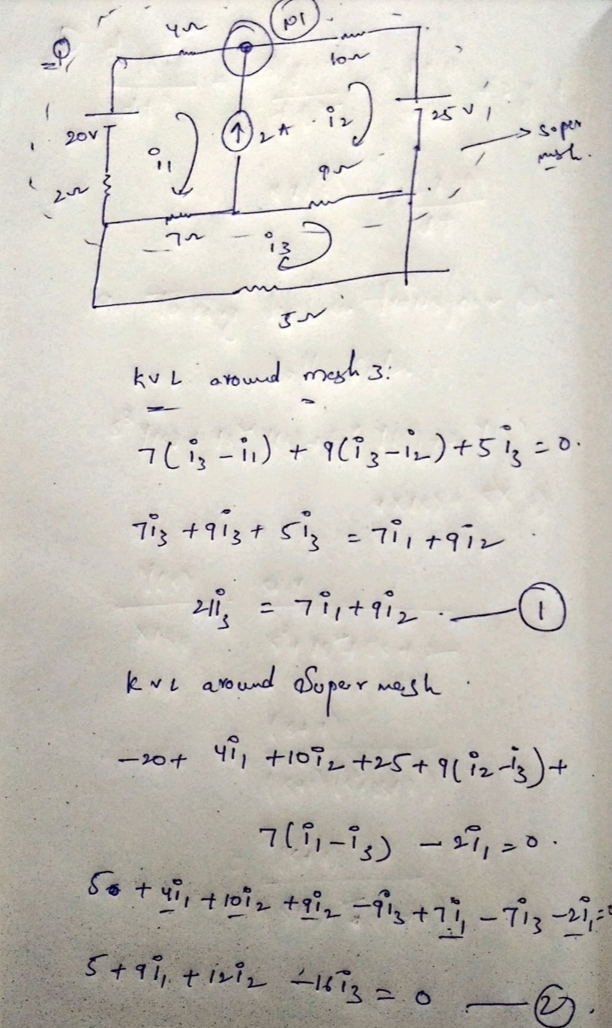 Q
4Ω
N1
10Ω
20V
i1
2A
i2
25V
super mesh.
2Ω
9Ω
7Ω
i3
5Ω
KVL around mesh 3:
7(i3 - i1) + 9(i3 - i2) + 5i3 = 0.
7i3 + 9i3 + 5i3 = 7i1 + 9i2
21i3 = 7i1 + 9i2. — 1
KVL around Supermesh.
-20 + 4i1 + 10i2 + 25 + 9(i2 - i3) +
7(i1 - i3) - 2i1 = 0.
5 + 4i1 + 10i2 + 9i2 - 9i3 + 7i1 - 7i3 - 2i1 = 0
5 + 9i1 + 12i2 - 16i3 = 0 — 2.